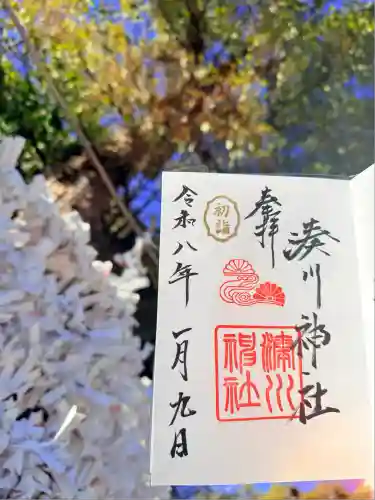 奉拝
湊川神社
初詣
令和八年
一月九日
湊川神社